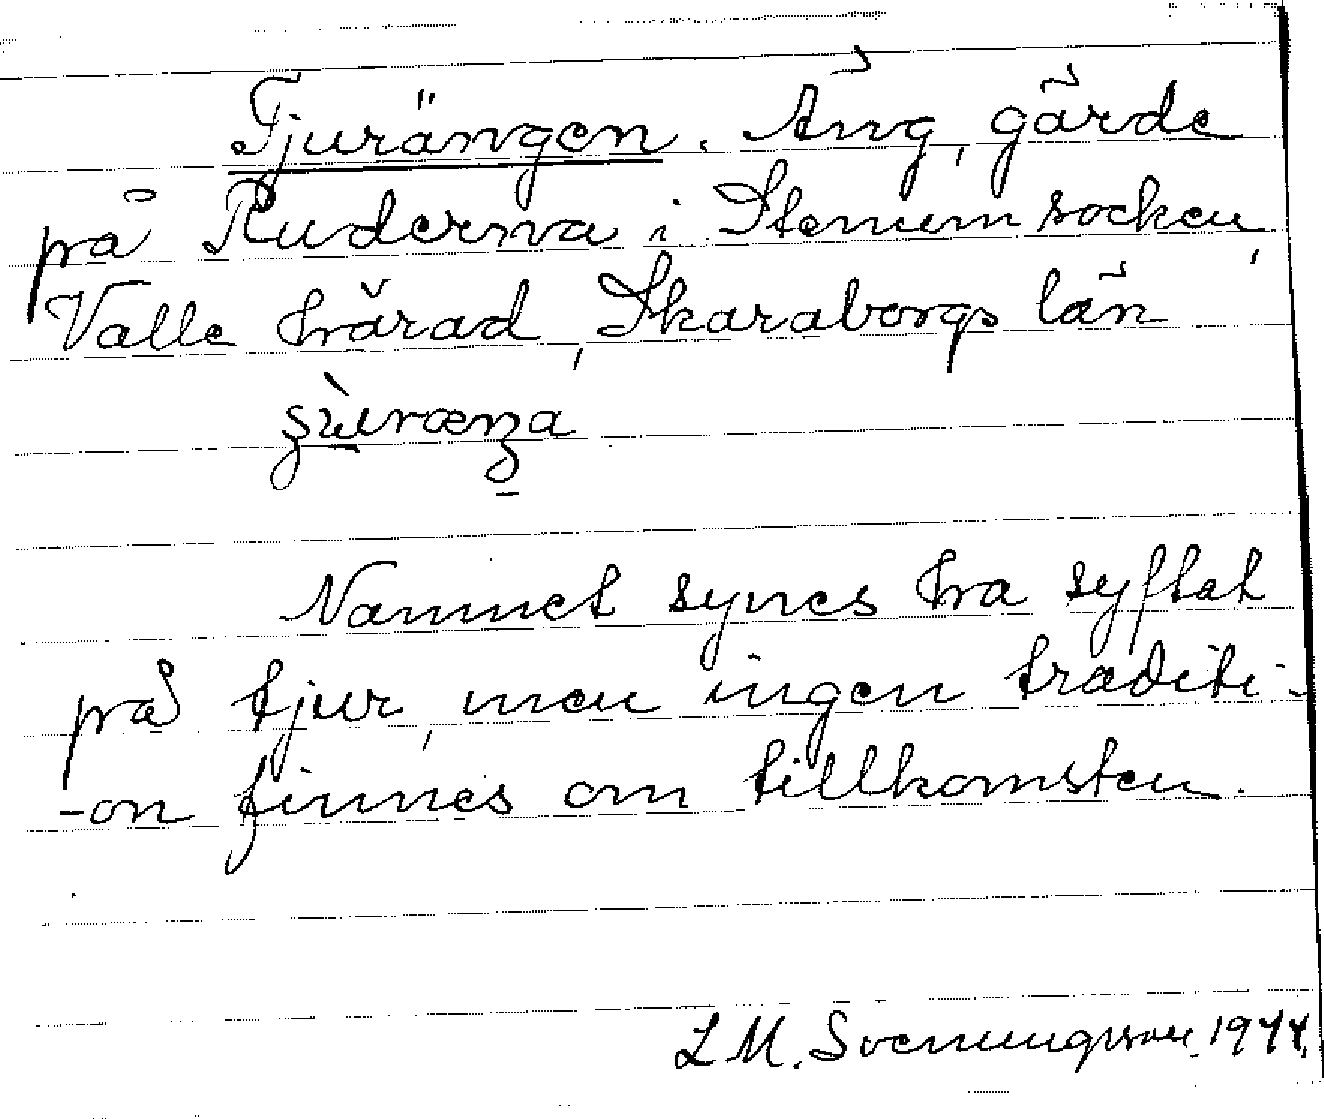 Tjurängen. Äng, gärde
på Ruderna i Stenum socken,
Valle härad, Skaraborgs län
Namnet synes ha syftat
på tjur, men ingen traditi-
-on finnes om tillkomsten.
L M. Svenungsson. 1944.